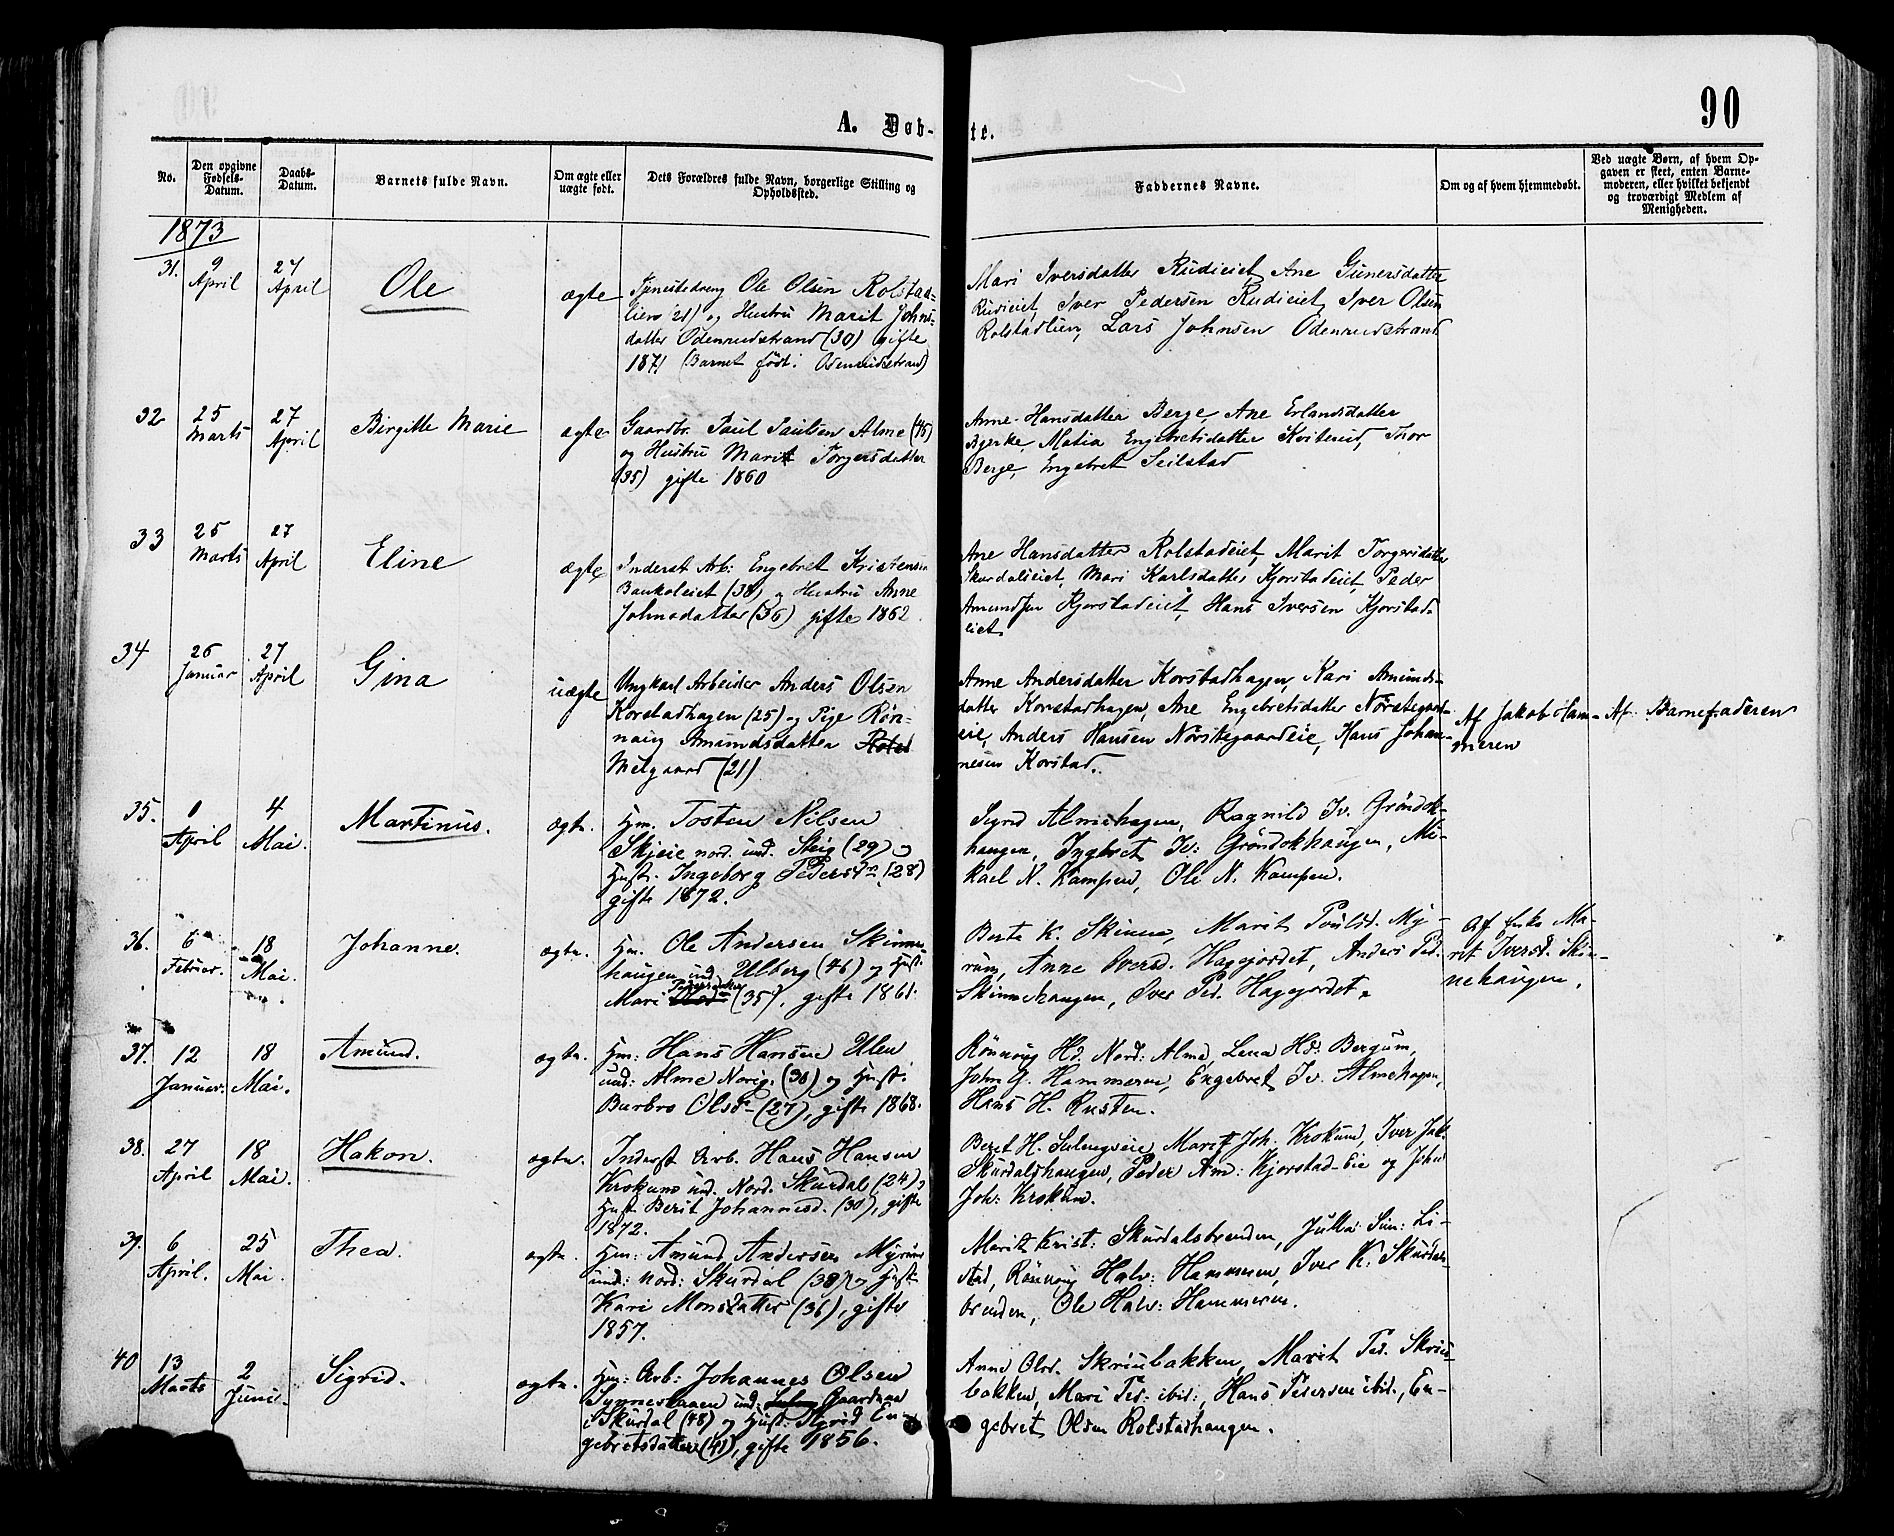 90
A. Døb-
te.
No.
Den opgivne Fødsels-Datum.
Daabs-Datum.
Barnets fulde Navn.
Om ægte eller uægte født.
Dets Forældres fulde Navn, borgerlige Stilling og Opholdssted.
Faddernes Navne.
Om og af hvem hjemmedøbt.
Ved uægte Børn, af hvem Op-
gaven er skeet, enten Barne-
moderen, eller hvilket bekjendt
og troværdigt Medlem af
Menigheden.
1873
31.
9 April
27 April
Ole
ægte
Tjenestedreng Ole Olsen Rolstad-
lien (21) og Hustru Marit Johns-
datter Odenrudstrand (30) gifte
1871 (Barnet født i Odenrudstrand)
Mari Iversdatter Rudieiet, Ane Gunersdatter
Rudieiet, Iver Pedersen Rudieiet, Iver Olsen
Rolstadlien, Lars Johnsen Odenrudstrand
32
25 Marts
27 April
Birgitte Marie
ægte
Gaardbr. Paul Paulsen Alme (45)
og Hustru Marit Torgersdatter
(35) gifte 1860
Anne Hansdatter Berge, Ane Erlandsdatter
Bjerke, Matia Engebretsdatter Kviterud, Thor
Berge, Engebret Seilstad
33
25 Marts
27 April
Eline
ægte
Inderst Arb: Engebret Kristensen
Baukoleiet (38) og Hustru Anne
Johnsdatter (36) gifte 1862
Ane Hansdatter Rolstadeiet, Marit Torgersdatter
Skurdalseiet, Mari Karlsdatter Kjorstadeiet, Peder
Amundsen Kjorstadeiet, Hans Iversen Kjorstad-
eiet
34
26 Januar
27 April
Gina
uægte
Ungkarl Arbeider Anders Olsen
Korstadhagen (25) og Pige Røn-
naug Amundsdatter
Melgaard (21)
Anne Andersdatter Korstadhagen, Kari Amunds-
datter Korstadhagen, Ane Engebretsdatter Nørstegaard-
eie, Anders Hansen Nørstegaardeie, Hans Johan-
nesen Korstad.
Af Jakob Ham-
meren
Af Barnefaderen
35.
1 April
4 Mai.
Martinus.
ægte.
Hm. Tosten Nilsen
Skjeie nord. und. Steig (29) og
Hust. Ingeborg Pedersd. (28)
gifte 1872.
Sigrid Almehagen, Ragnild Iv. Grøndok-
haugen, Ingebret Iv: Grøndokhaugen, Mi-
kael N. Kampen, Ole N. Kampen.
36.
6 Februar.
18 Mai.
Johanne.
ægte.
Hm. Ole Andersen Skinne-
haugen und. Ulberg (46) og Hust.
Mari (35), gifte 1861.
Berte K. Skinne, Marit Poulsd. My-
rum, Anne Iversd. Hagejordet, Anders Ped.
Skinnehaugen, Iver Ped. Hagejordet.
af Enke Ma-
rit Iversd. Skin-
nehaugen.
37.
12 Januar.
18 Mai.
Amund.
ægte.
Hm: Hans Hansen Ulen
und: Alme Norig. (38) og Hust.
Barbro Olsd. (27), gifte 1868.
Rønnoug Hd. Nord: Alme, Lena Hd: Bergum,
John G. Hammeren, Engebret Iv. Almehagen,
Hans H. Rusten.
38.
27 April
18 Mai.
Hakon.
ægte.
Inderst Arb. Hans Hansen
Krokum und. Nord. Skurdal (24) og
Hust Berit Johannesd. (30), gifte
1872.
Beret H. Sulengseie, Marit Joh. Krokum, Iver Jak.
Skurdalshaugen, Peder Am: Kjorstad-Eie og John
Joh: Krokum.
39.
6 April.
25 Mai.
Thea.
ægte.
Hm: Amund Andersen Myrum
und: nord: Skurdal (38) og Hust
Kari Monsdatter (36), gifte
1857.
Marit Krist: Skurdalsbrenden, Julia: Sim: Li-
stad, Rønnoug Halv: Hammeren, Iver K. Skurdals-
brenden, Ole Halv: Hammeren.
40
13 Marts
2 Juni.
Sigrid.
ægte.
Hm: Arb: Johannes Olsen
und: Gaardnaa
i Skurdal (48) og Hust: Sigrid En-
gebretsdatter (41), gifte 1856.
Anne Olsd. Skriubakken, Marit Ped. Skriu-
bakken, Mari Ped: ibid:, Hans Pedersen ibid., En-
gebret Olsen Rolstadhaugen.